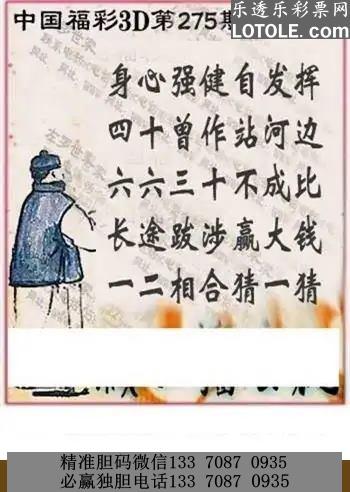 中国福彩3D第275期
乐透乐彩票网
LOTOLE.COM
身心强健自发挥
四十曾作站河边
六六三十不成比
长途跋涉赢大钱
一二相合猜一猜
精准胆码微信133 7087 0935
必赢独胆电话133 7087 0935